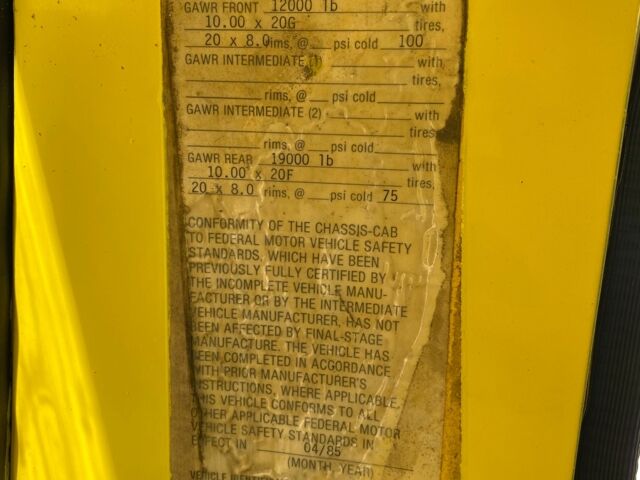 GAWR FRONT 12000 lb with
10.00 x 20G tires,
20 x 8.0 rims, @ psi cold 100
GAWR INTERMEDIATE (1) with
tires,
rims, @ psi cold
GAWR INTERMEDIATE (2) - with
tires
rims, @ psi cold
GAWR REAR 19000 lb with
10.00 x 20F tires,
20 x 8.0 rims, @ psi cold 75
CONFORMITY OF THE CHASSIS-CAB
TO FEDERAL MOTOR VEHICLE SAFETY
STANDARDS, WHICH HAVE BEEN
PREVIOUSLY FULLY CERTIFIED BY
THE INCOMPLETE VEHICLE MANU-
FACTURER OR BY THE INTERMEDIATE
VEHICLE MANUFACTURER, HAS NOT
BEEN AFFECTED BY FINAL-STAGE
MANUFACTURE. THE VEHICLE HAS
BEEN COMPLETED IN ACCORDANCE
WITH PRIOR MANUFACTURER'S
INSTRUCTIONS, WHERE APPLICABLE.
THIS VEHICLE CONFORMS TO ALL
OTHER APPLICABLE FEDERAL MOTOR
VEHICLE SAFETY STANDARDS IN
EFFECT IN 04/85
(MONTH, YEAR)
VEHICLE